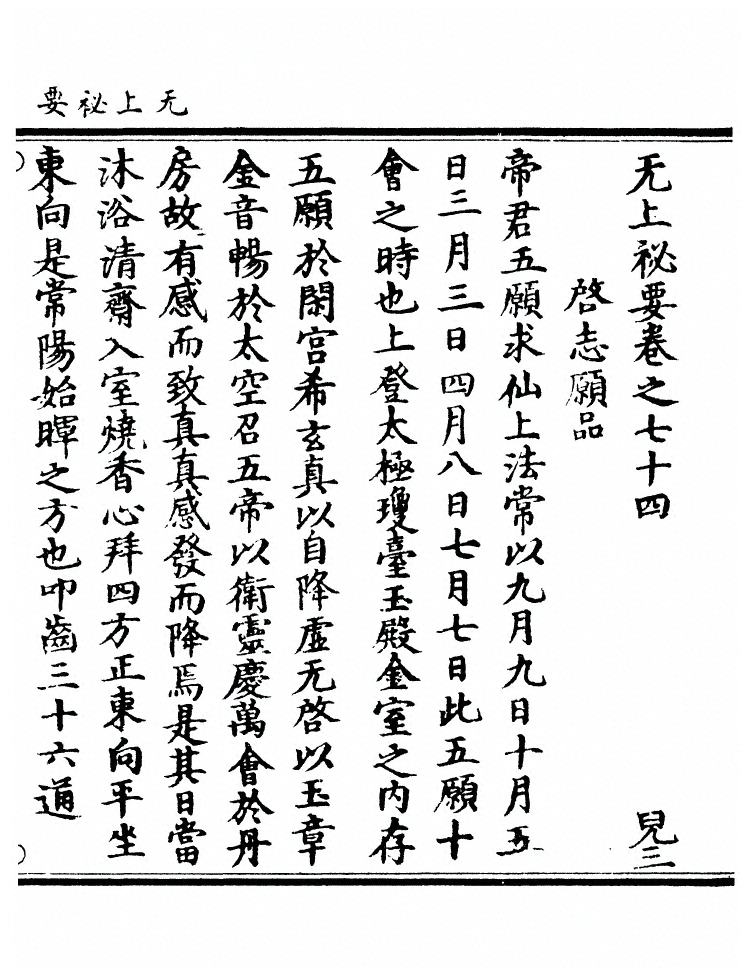 无上祕要
无上祕要卷之七十四 兒三
啓志願品
帝君五願求仙上法常以九月九日十月五
日三月三日四月八日七月七日此五願十
會之時也上登太極瓊臺玉殿金室之内存
五願於閑宮希玄真以自降虛无啓以玉章
金音暢於太空召五帝以衛靈慶萬會於丹
房故有感而致真真感發而降焉是其日當
沐浴清齋入室燒香心拜四方正東向平坐
東向是常陽始暉之方也叩齒三十六通